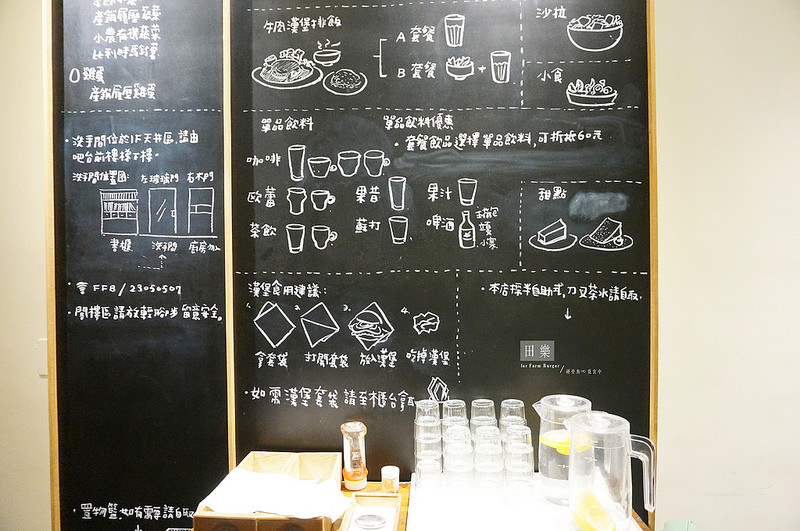 產銷履歷蔬菜
小農有機蔬菜
比利時馬鈴薯
雞蛋
產銷履歷雞蛋
・洗手間位於1F天井區,請由
吧台前樓梯下樓。
洗手間位置圖:
左玻璃門
右木門
書櫃
洗手間
廚房
FFB/23050507
・閣樓區請放輕腳步 留意安全。
・置物籃,如有需要請自取
牛肉漢堡排飯
A 套餐
B 套餐
+
沙拉
小食
單品飲料
單品飲料優惠
・套餐飲品選擇單品飲料,可折抵60元
咖啡
歐蕾
果昔
果汁
茶飲
蘇打
啤酒
甜點
漢堡食用建議:
1.
2.
3.
4.
拿套袋
打開套袋
放入漢堡
吃掉漢堡
・如需漢堡套袋請至櫃台拿取
・本店採半自助式,刀叉茶水請自取。
田樂
for Farm Burger